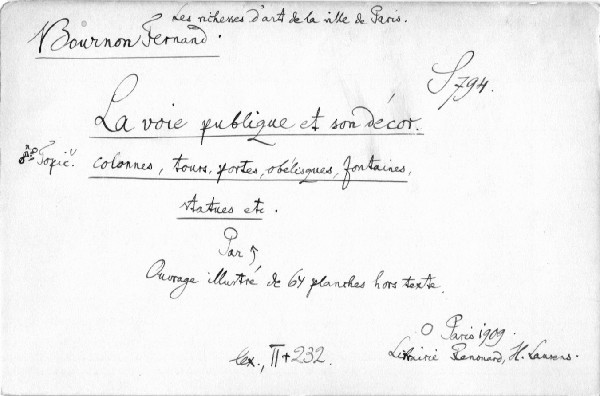 Les richesses d'art de la ville de Paris.
Bournon Fernand.
S 794.
La voie publique et son décor.
colonnes, tours, portes, obélisques, fontaines,
statues etc.
Par
Ouvrage illustré de 64 planches hors texte.
Paris 1909.
Librairie Renouard, H. Laurens.
lex., II + 232.